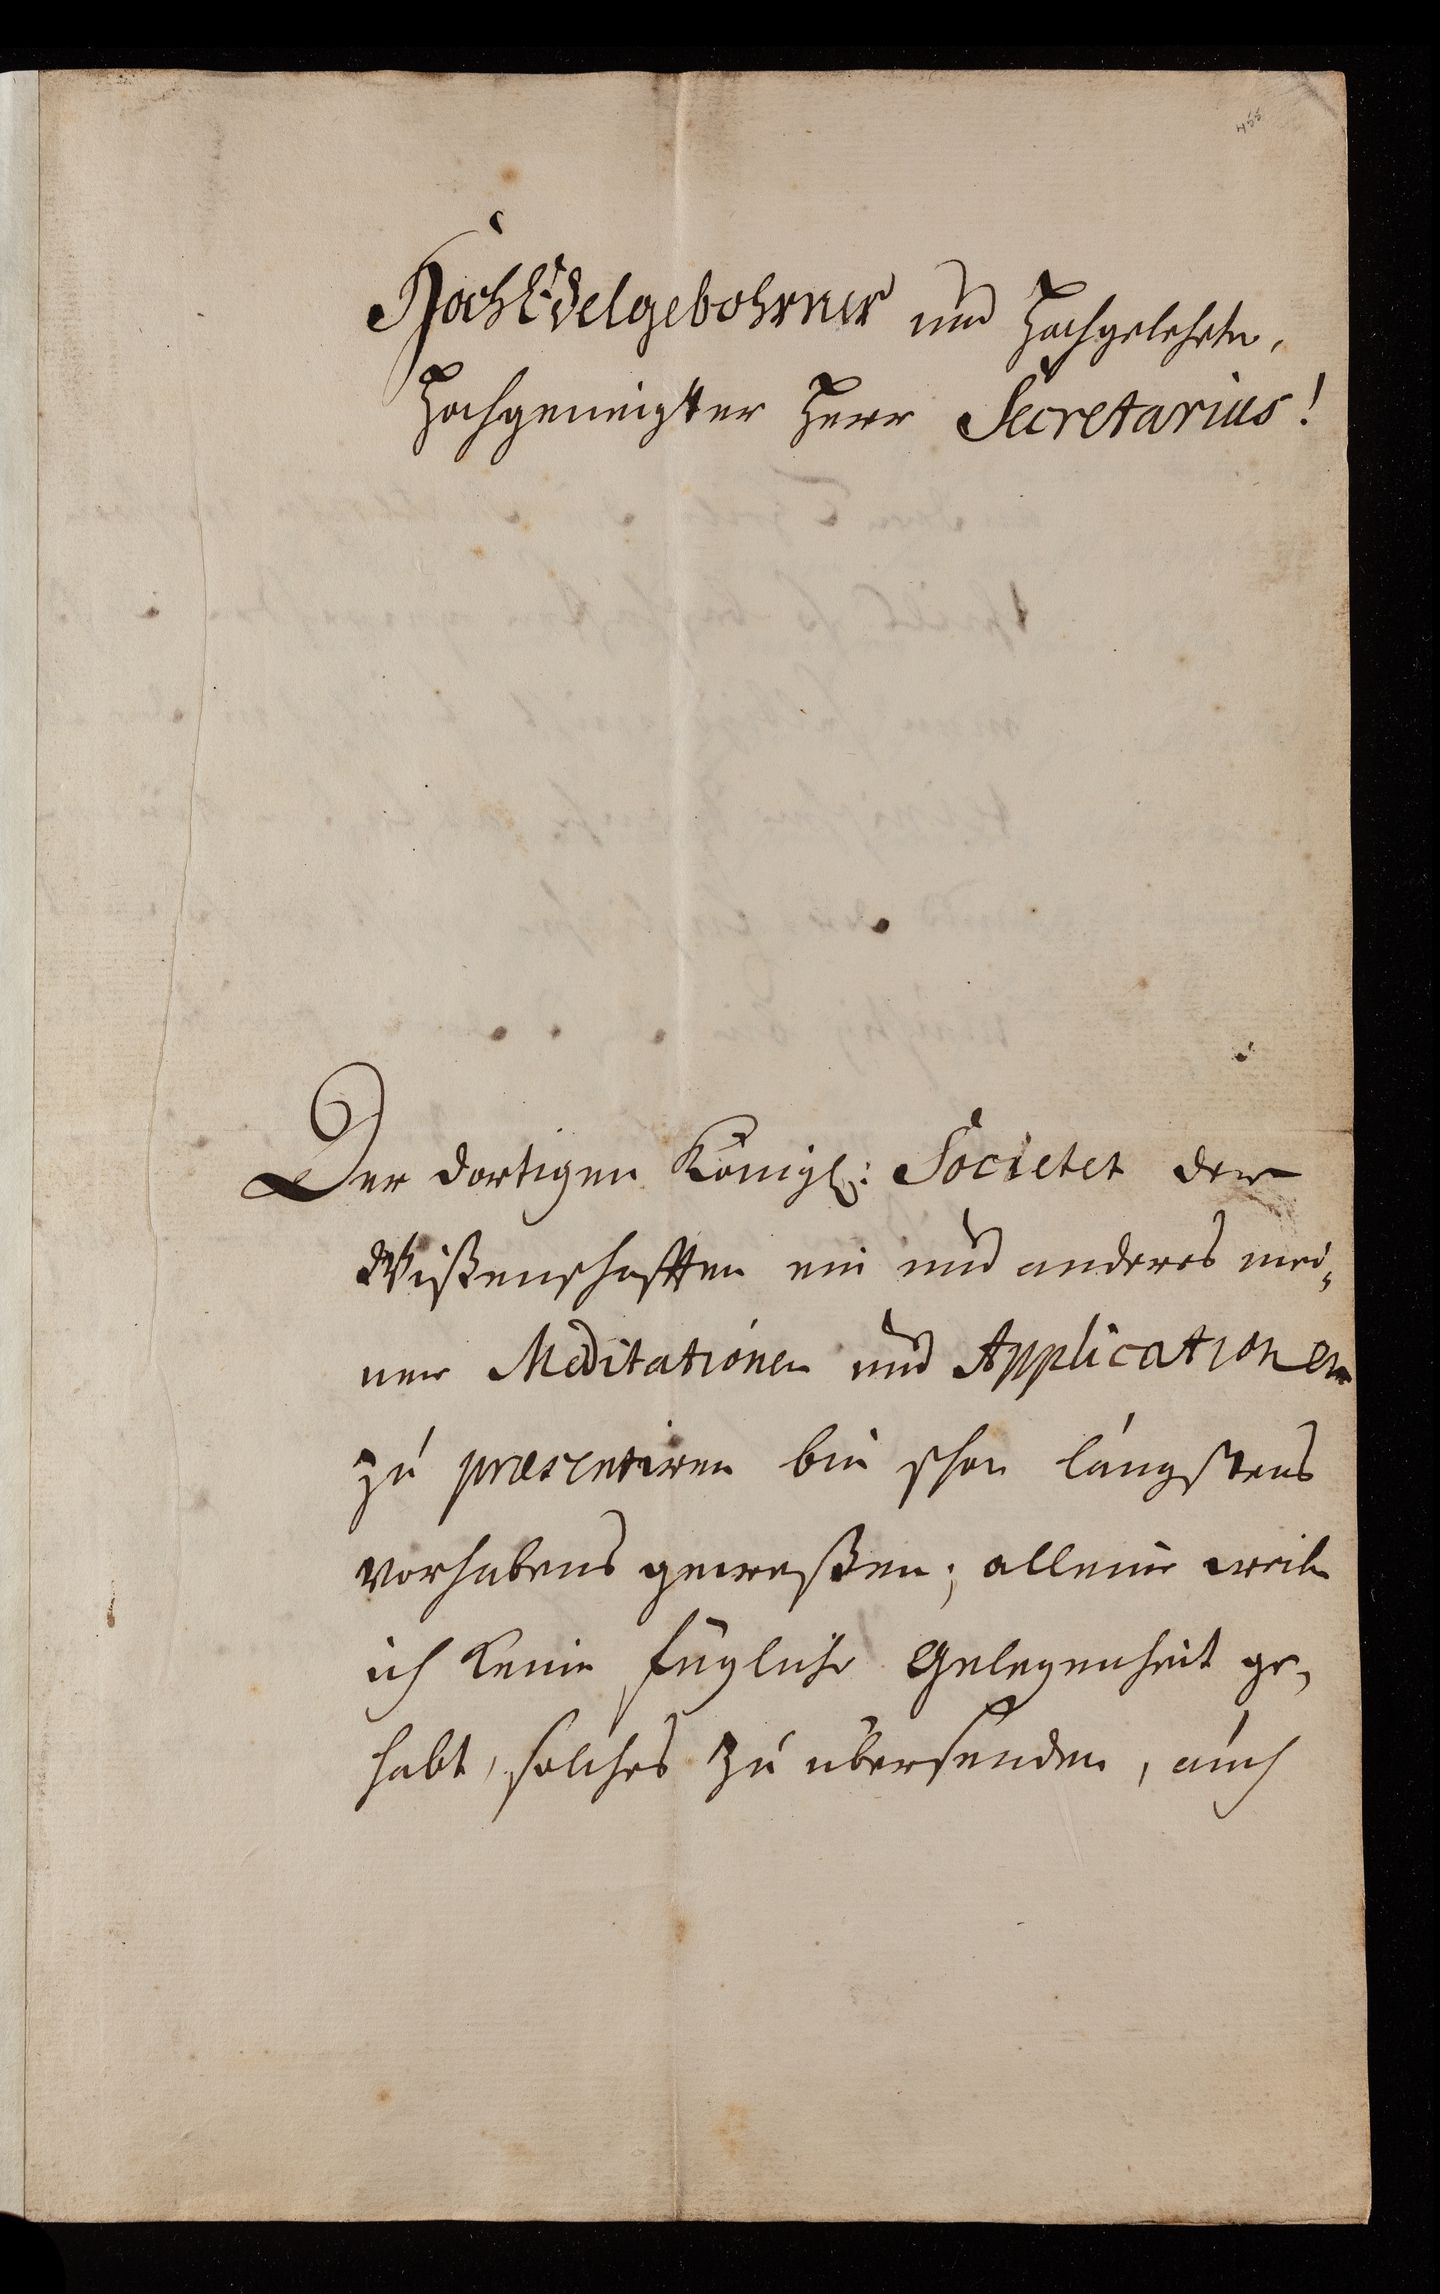 455
HochEdelgebohrner und Hochgelehrter,
Hochgeneigtter Herr Secretarius!
Der dortigen Königl: Societet der
Wißenschafften ein und anderes mei-
ner Meditationen und Applicationen
zu præsentiren bin schon längstens
vorhabens geweßen; alleine weil
ich keine fügliche Gelegenheit ge-
habt, solches zu übersenden, auch